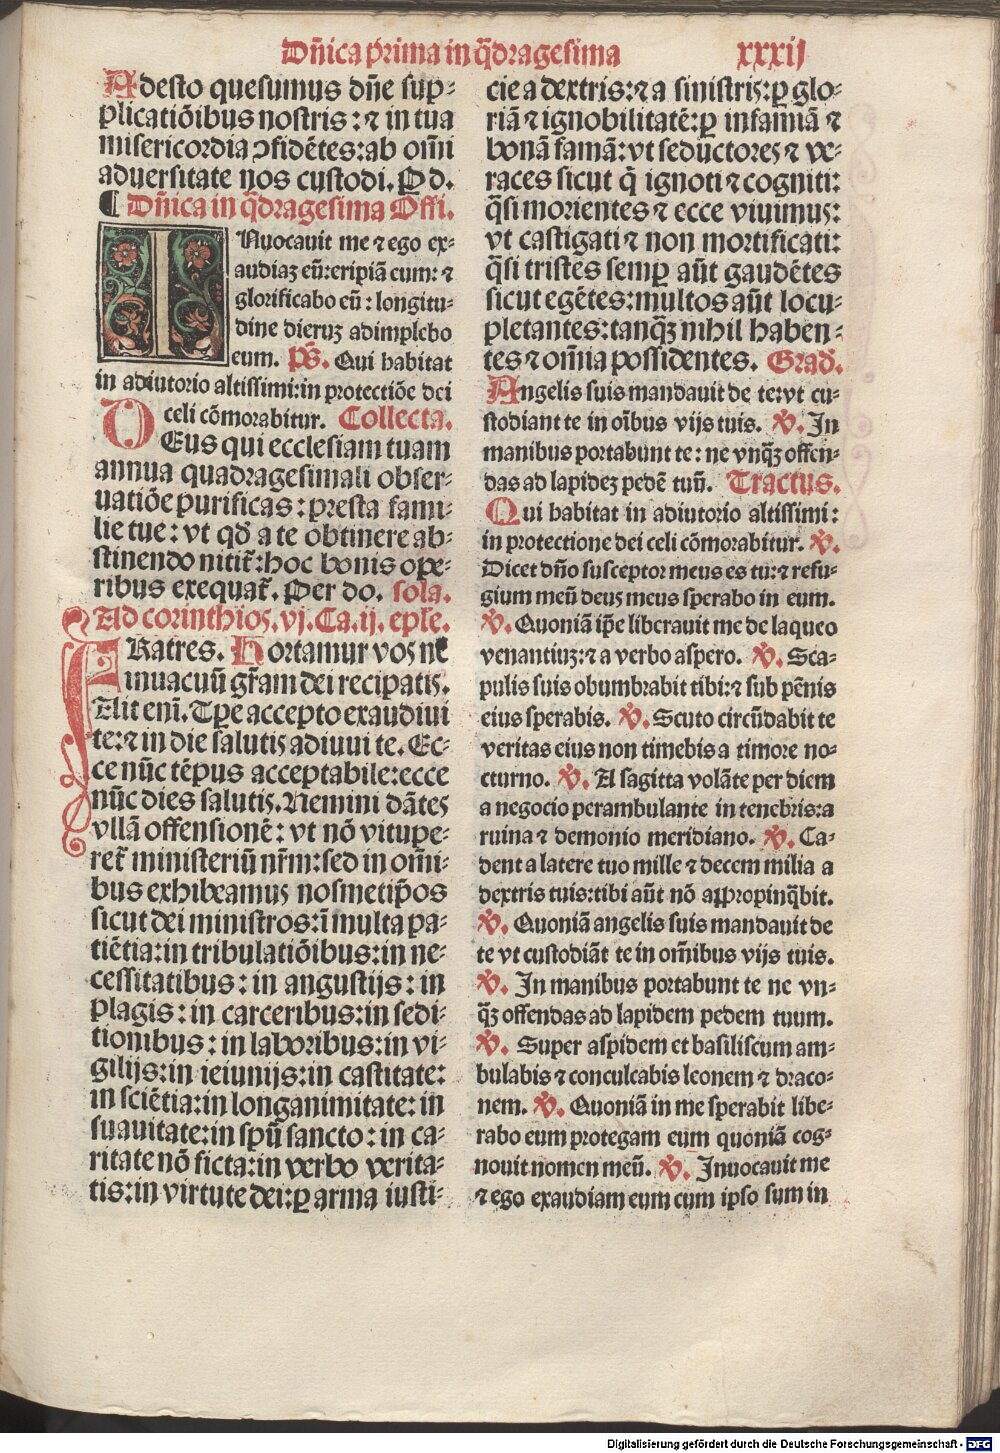 Dñica prima in q̃dragesima xxxij
Adesto quesumus dñe sup-
plicatiõibus nostris : ⁊ in tua
misericordia ꝯfidẽtes: ab om̃i
aduersitate nos custodi. P d.
¶ Dñica in q̃dragesima Offi.
INuocauit me ⁊ ego ex-
audiaꝫ eũ: eripiã cum: ⁊
glorificabo eũ : longitu-
dine dieruꝫ adimplebo
eum. p̃s. Qui habitat
in adiutorio altissimi: in protectiõe dei
celi cõmorabitur. Collecta.
DEus qui ecclesiam tuam
annua quadragesimali obser-
uatiõe purificas : presta fami-
lie tue : vt qd̃ a te obtinere ab-
stinendo nitit̃: hoc bonis ope-
ribus exequat̃. Per do. sola.
Ad corinthios. vj. Ca. ij. epl̃e.
FRatres. Hortamur vos ne
in uacuũ gr̃am dei recipatis.
Ait enĩ. Tꝑe accepto exaudiui
te: ⁊ in die salutis adiuui te. Ec-
ce nũc tẽpus acceptabile: ecce
nũc dies salutis. Nemini dãtes
vllã offensionẽ : vt nõ vitupe-
ret̃ ministeriũ nr̃m: sed in om̃i-
bus exhibeamus nosmetip̃os
sicut dei ministros: ĩ multa pa-
tiẽtia: in tribulatiõibus: in ne-
cessitatibus : in angustijs : in
plagis : in carceribus: in sedi-
tionibus : in laboribus: in vi-
gilijs: in ieiunijs: in castitate:
in sciẽtia: in longanimitate: in
suauitate: in spũ sancto : in ca-
ritate nõ ficta: in verbo verita-
tis: in virtute dei: ꝑ arma iusti-
cie a dextris: ⁊ a sinistris: ꝑ glo-
riã ⁊ ignobilitatẽ: ꝑ infamiã ⁊
bonã famã: vt seductores ⁊ ve-
races sicut q̃ ignoti ⁊ cogniti:
q̃si morientes ⁊ ecce viuimus:
vt castigati ⁊ non mortificati:
q̃si tristes semꝑ aũt gaudẽtes
sicut egẽtes: multos aũt locu-
pletantes: tanq̃ꝫ nihil haben-
tes ⁊ om̃ia possidentes. Grad̃.
Angelis suis mandauit de te: vt cu-
stodiant te in oĩbus vijs tuis. ℣. In
manibus portabunt te : ne vnq̃ꝫ offen-
das ad lapideꝫ pedẽ tuũ. Tractus.
Qui habitat in adiutorio altissimi :
in protectione dei celi cõmorabitur. ℣.
Dicet dño susceptor meus es tu: ⁊ refu-
gium meũ deus meus sperabo in eum.
℣. Quoniã ip̃e liberauit me de laqueo
venantiuꝫ: ⁊ a verbo aspero. ℣. Sca-
pulis suis obumbrabit tibi: ⁊ sub pẽnis
eius sperabis. ℣. Scuto circũdabit te
veritas eius non timebis a timore no-
cturno. ℣. A sagitta volãte per diem
a negocio perambulante in tenebris: a
ruina ⁊ demonio meridiano. ℣. Ca-
dent a latere tuo mille ⁊ decem milia a
dextris tuis: tibi aũt nõ appropinq̃bit.
℣. Quoniã angelis suis mandauit de
te vt custodiãt te in om̃ibus vijs tuis.
℣. In manibus portabunt te ne vn-
q̃ꝫ offendas ad lapidem pedem tuum.
℣. Super aspidem et basiliscum am-
bulabis ⁊ conculcabis leonem ⁊ draco-
nem. ℣. Quoniã in me sperabit libe-
rabo eum protegam eum quoniã cog-
nouit nomen meũ. ℣. Inuocauit me
⁊ ego exaudiam eum cum ipso sum in
Digitalisierung gefördert durch die Deutsche Forschungsgemeinschaft - DFG